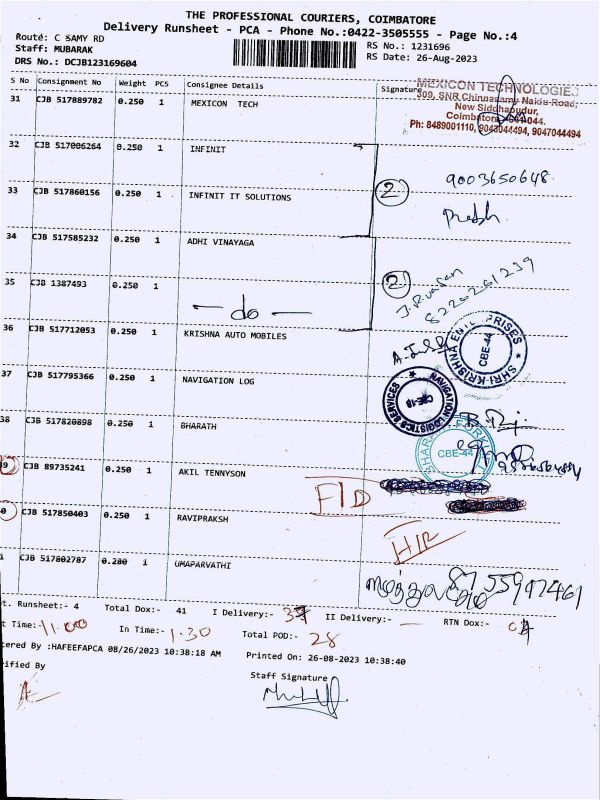 THE PROFESSIONAL COURIERS, COIMBATORE
Delivery Runsheet - PCA - Phone No.:0422-3505555 - Page No.:4
Route: C SAMY RD
Staff: MUBARAK
DRS No.: DCJB123169604
RS No.: 1231696
RS Date: 26-Aug-2023
S No Consignment No Weight PCS Consignee Details Signature
MEXICON TECHNOLOGIE
309, SNR Chinnasamy Naidu Road,
New Siddhapudur,
Coimbatore
Ph: 8489001110, 9043044494, 9047044494
31 CJB 517889782 0.250 1 MEXICON TECH
32 CJB 517006264 0.250 1 INFINIT
2 9003650648
33 CJB 517860156 0.250 1 INFINIT IT SOLUTIONS
34 CJB 517585232 0.250 1 ADHI VINAYAGA
2
35 CJB 1387493 0.250 1 - do -
36 CJB 517712053 0.250 1 KRISHNA AUTO MOBILES
SHRI KRISHNA ENTERPRISES
CBE-44
37 CJB 517795366 0.250 1 NAVIGATION LOG
NAVIGATION LOGISTICS SERVICES
CBE-18
38 CJB 517820898 0.250 1 BHARATH
CBE-44
39 CJB 89735241 0.250 1 AKIL TENNYSON
FID
40 CJB 517850403 0.250 1 RAVIPRAKSH
HR
1 CJB 517802787 0.280 1 UMAPARVATHI
t. Runsheet:- 4 Total Dox:- 41 I Delivery:- II Delivery:- — RTN Dox:-
t Time:- 11.00 In Time:- 1.30 Total POD:- 28
tered By :HAFEEFAPCA 08/26/2023 10:38:18 AM Printed On: 26-08-2023 10:38:40
rified By
Staff Signature